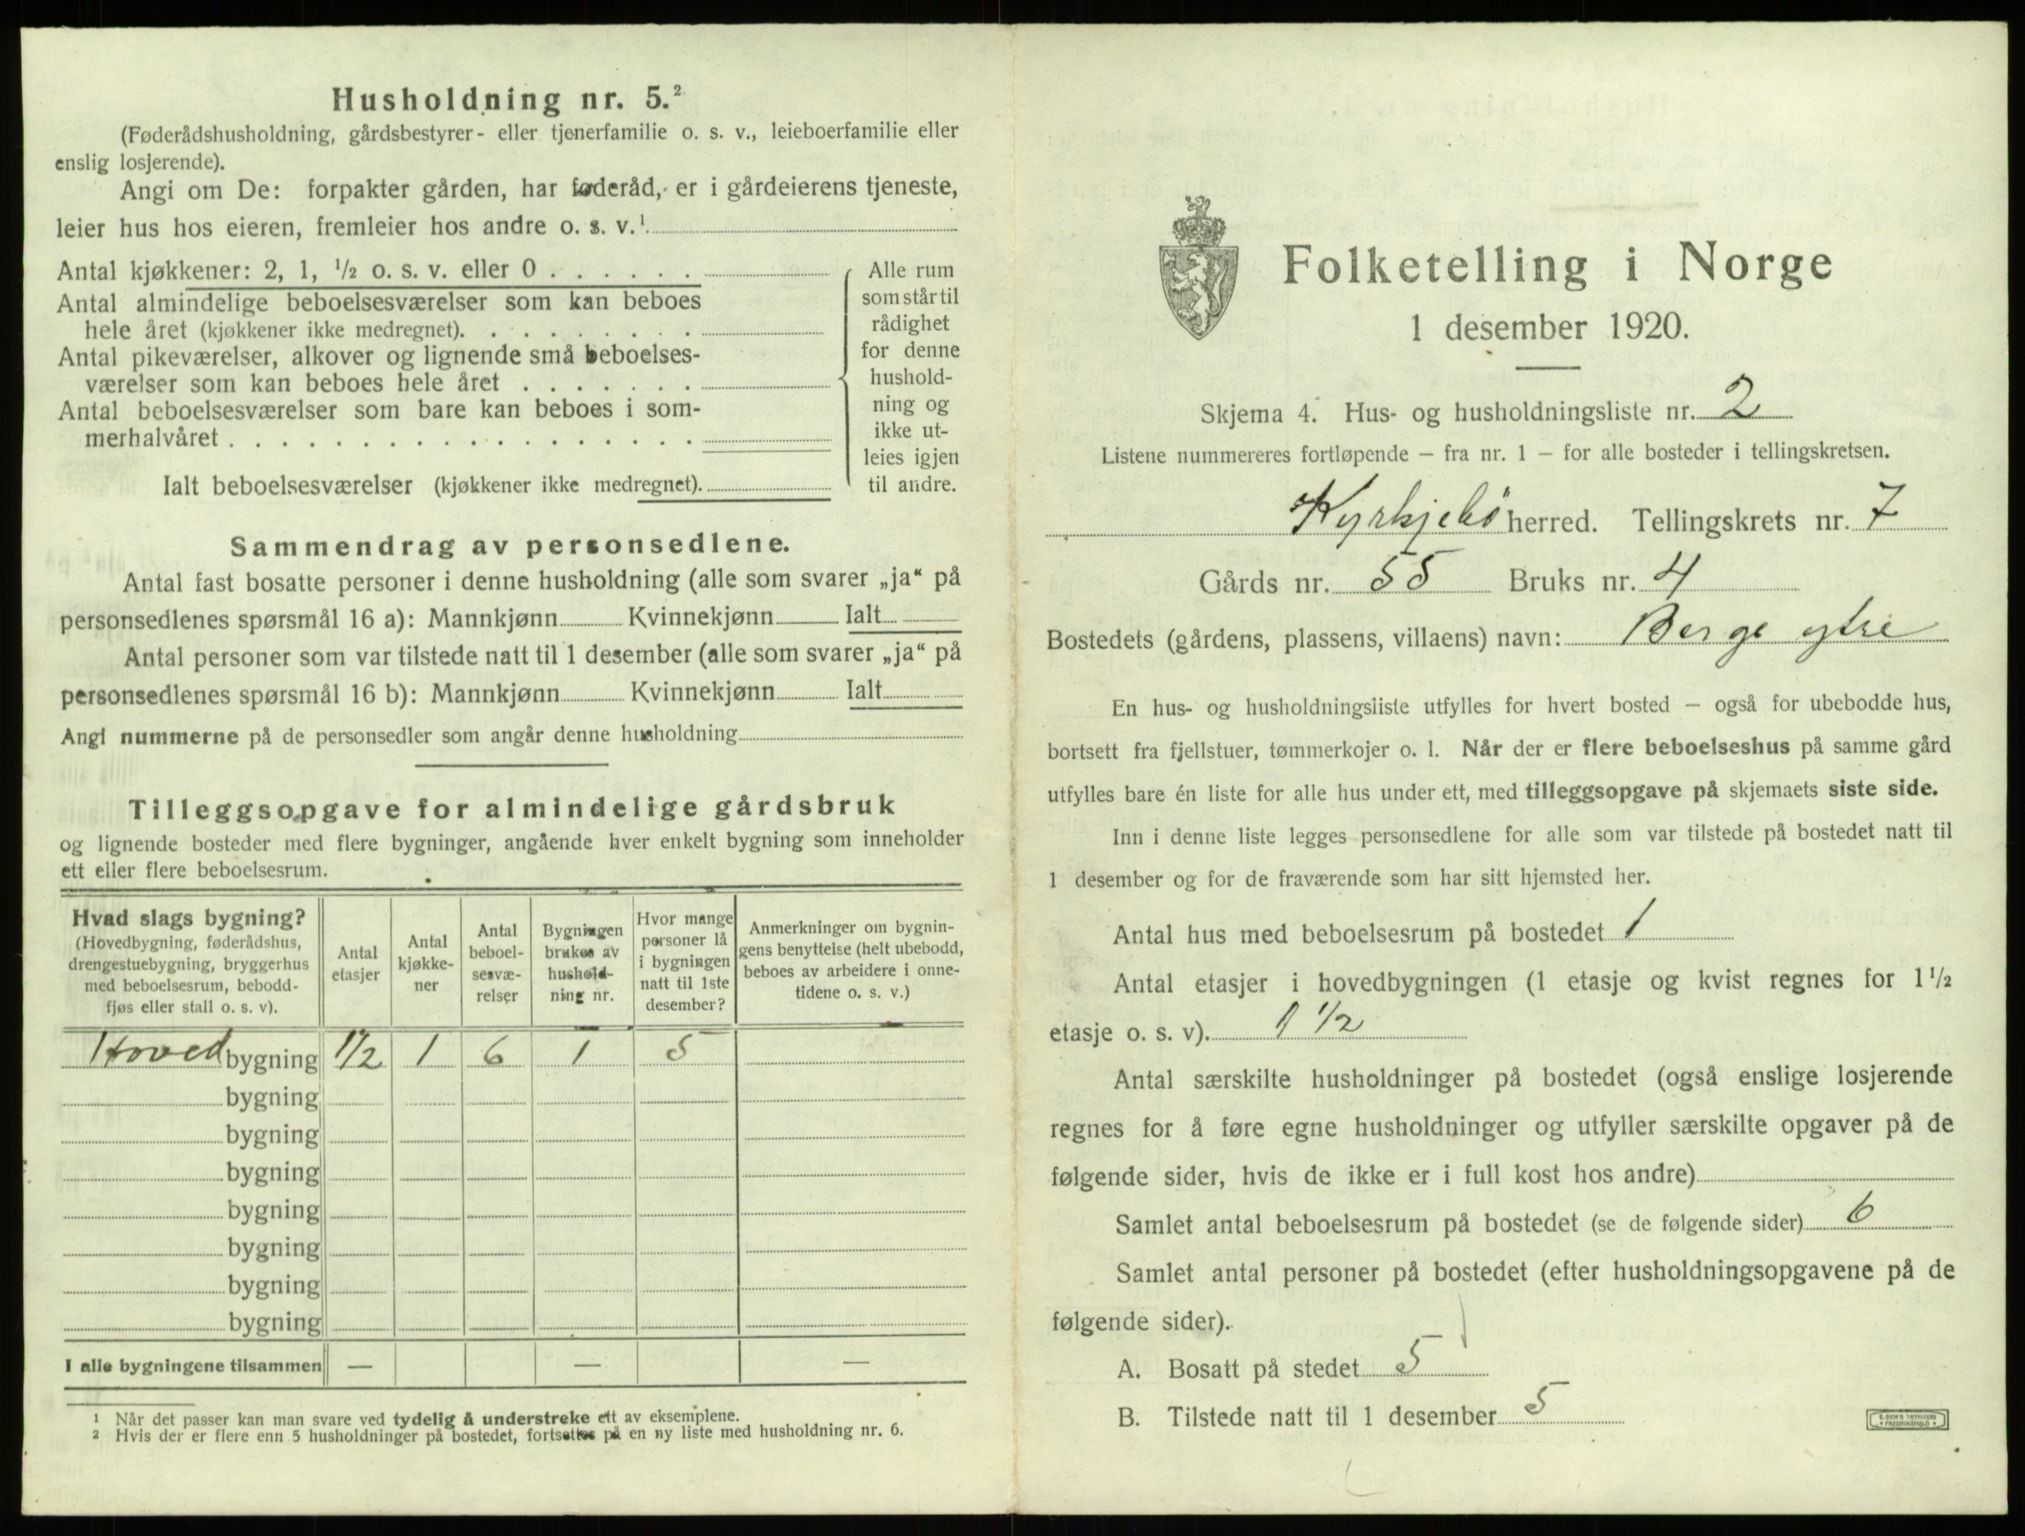 Husholdning nr. 5.²
(Føderådshusholdning, gårdsbestyrer- eller tjenerfamilie o. s. v., leieboerfamilie eller
enslig losjerende).
Angi om De: forpakter gården, har føderåd, er i gårdeierens tjeneste,
leier hus hos eieren, fremleier hos andre o. s. v.¹
Antal kjøkkener: 2, 1, ½ o. s. v. eller 0 . . . . . .
Antal almindelige beboelsesværelser som kan beboes
hele året (kjøkkener ikke medregnet). . . . . . . . .
Antal pikeværelser, alkover og lignende små beboelses-
værelser som kan beboes hele året . . . . . . .
Antal beboelsesværelser som bare kan beboes i som-
merhalvåret . . . . . . . . . . . . . . . . . .
Ialt beboelsesværelser (kjøkkener ikke medregnet).
Alle rum
som står til
rådighet
for denne
hushold-
ning og
ikke ut-
leies igjen
til andre.
Sammendrag av personsedlene.
Antal fast bosatte personer i denne husholdning (alle som svarer „ja“ på
personsedlenes spørsmål 16 a): Mannkjønn Kvinnekjønn Ialt
Antal personer som var tilstede natt til 1 desember (alle som svarer „ja“ på
personsedlenes spørsmål 16 b): Mannkjønn Kvinnekjønn Ialt
Angi nummerne på de personsedler som angår denne husholdning
Tilleggsopgave for almindelige gårdsbruk
og lignende bosteder med flere bygninger, angående hver enkelt bygning som inneholder
ett eller flere beboelsesrum.
Hvad slags bygning?
(Hovedbygning, føderådshus,
drengestuebygning, bryggerhus
med beboelsesrum, bebodd-
fjøs eller stall o. s. v).
Antal
etasjer
Antal
kjøkke-
ner
Antal
beboel-
sesvæ-
relser
Bygningen
brukes av
hushold-
ning nr.
Hvor mange
personer lå
i bygningen
natt til 1ste
desember?
Anmerkninger om bygnin-
gens benyttelse (helt ubebodd,
beboes av arbeidere i onne-
tidene o. s. v.)
Hoved bygning 1½ 1 6 1 5
bygning
bygning
bygning
bygning
bygning
bygning
bygning
I alle bygningene tilsammen — — —
¹ Når det passer kan man svare ved tydelig å understreke ett av eksemplene.
² Hvis der er flere enn 5 husholdninger på bostedet, fortsettes på en ny liste med husholdning nr. 6.
Folketelling i Norge
1 desember 1920.
Skjema 4. Hus- og husholdningsliste nr. 2
Listene nummereres fortløpende – fra nr. 1 – for alle bosteder i tellingskretsen.
Kyrkjebö herred. Tellingskrets nr. 7
Gårds nr. 55 Bruks nr. 4
Bostedets (gårdens, plassens, villaens) navn: Berge ytre
En hus- og husholdningsliste utfylles for hvert bosted – også for ubebodde hus,
bortsett fra fjellstuer, tømmerkojer o. l. Når der er flere beboelseshus på samme gård
utfylles bare én liste for alle hus under ett, med tilleggsopgave på skjemaets siste side.
Inn i denne liste legges personsedlene for alle som var tilstede på bostedet natt til
1 desember og for de fraværende som har sitt hjemsted her.
Antal hus med beboelsesrum på bostedet 1
Antal etasjer i hovedbygningen (1 etasje og kvist regnes for 1½
etasje o. s. v). 1½
Antal særskilte husholdninger på bostedet (også enslige losjerende
regnes for å føre egne husholdninger og utfyller særskilte opgaver på de
følgende sider, hvis de ikke er i full kost hos andre)
Samlet antal beboelsesrum på bostedet (se de følgende sider) 6
Samlet antal personer på bostedet (efter husholdningsopgavene på de
følgende sider).
A. Bosatt på stedet 5
B. Tilstede natt til 1 desember 5